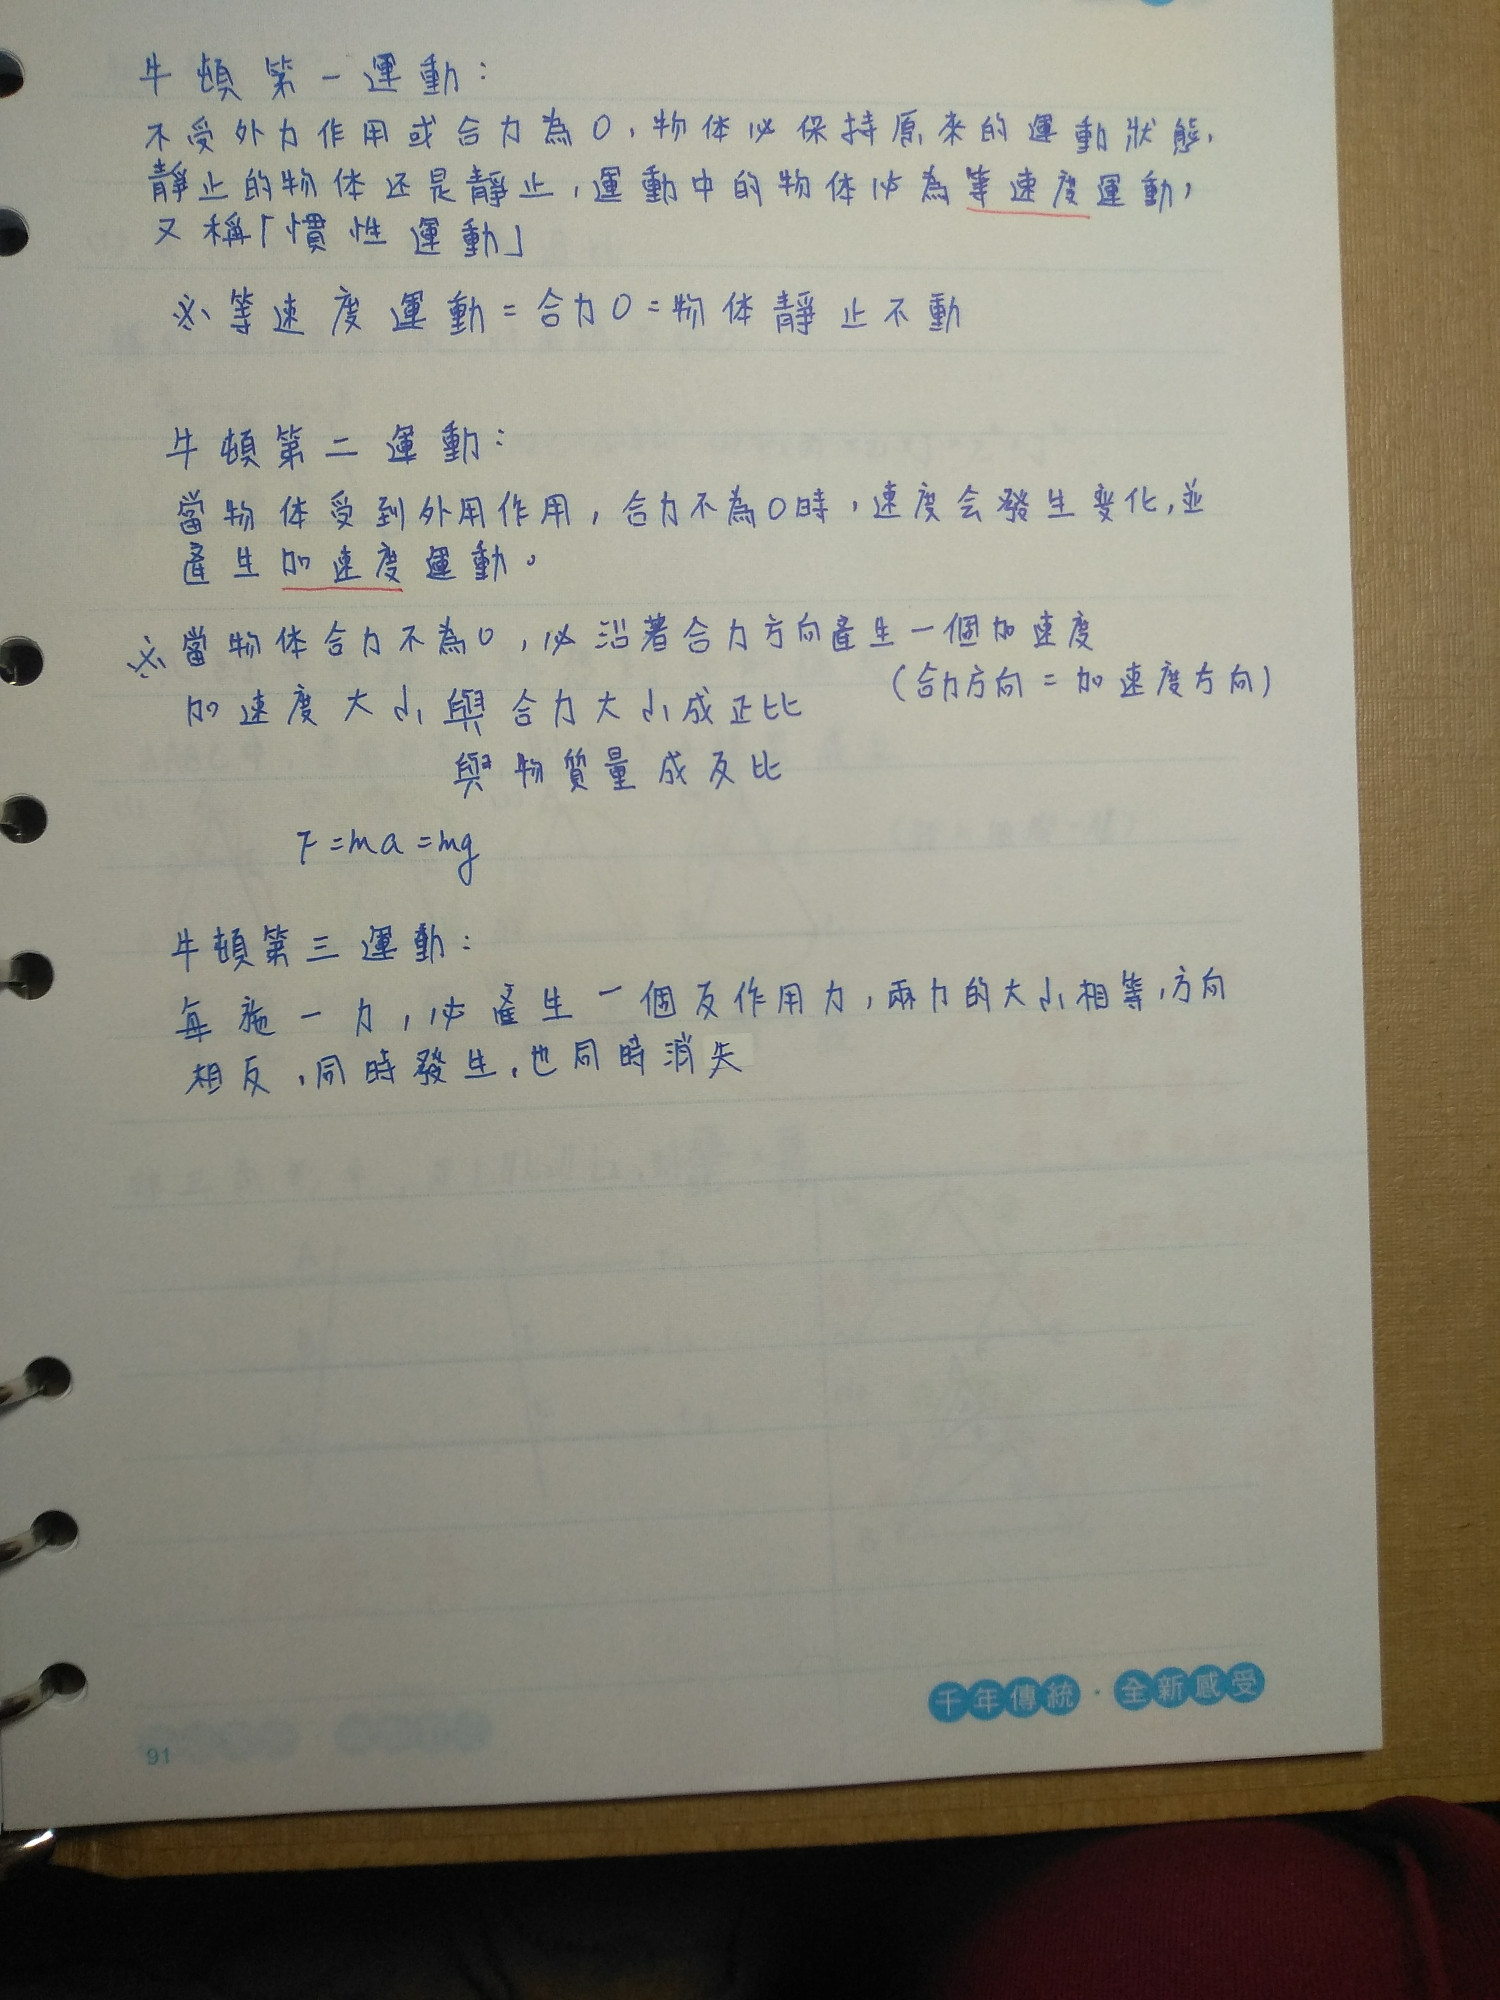 牛頓第一運動：
不受外力作用或合力為0，物体必保持原來的運動狀態，
靜止的物体还是靜止，運動中的物体必為等速度運動，
又稱「慣性運動」
※等速度運動=合力0=物体靜止不動
牛頓第二運動：
當物体受到外用作用，合力不為0時，速度会發生変化，並
產生加速度運動。
※當物体合力不為0，必沿著合力方向產生一個加速度
(合力方向=加速度方向)
加速度大小與合力大小成正比
與物質量成反比
F=ma=mg
牛頓第三運動：
每施一力，必產生一個反作用力，兩力的大小相等，方向
相反，同時發生，也同時消失
千年傳統·全新感受
91